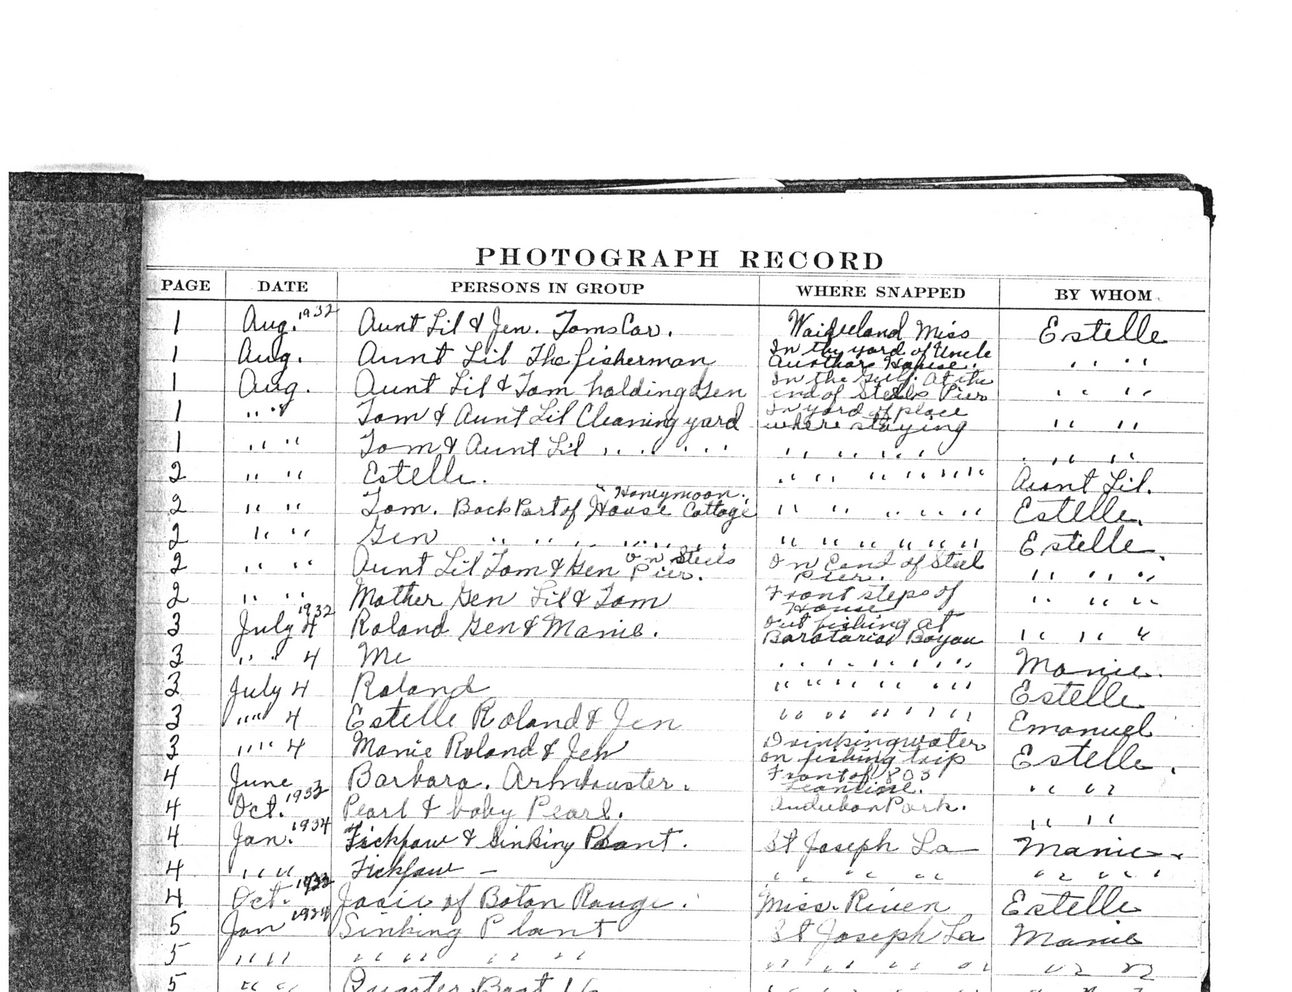 PHOTOGRAPH RECORD
PAGE DATE PERSONS IN GROUP WHERE SNAPPED BY WHOM
1 Aug. 1932 Aunt Lil & Jen. Toms Car. Miss Estelle
1 Aug. Aunt Lil The fisherman In the yard of Uncle House. " "
1 Aug. Aunt Lil & Tom holding Gen In the Gulf. At the end of Steels Pier " "
1 " " Tom & Aunt Lil Cleaning yard In yard of place where staying " "
1 " " Tom & Aunt Lil " " " " " " " " " " " "
2 " " Estelle. " " " " " " " Aunt Lil.
2 " " Tom. Back Part of House "Honeymoon Cottage " " " " " " Estelle.
2 " " Gen " " " " " " " " " " " " Estelle.
2 " " Aunt Lil Tom & Gen On Steels Pier. On End of Steel Pier. " " "
2 " " Mother Gen Lil & Tom Front steps of House " " "
3 July 4 1932 Roland Gen & Manie. Out fishing at Barataria Bayou " " "
3 " " 4 Me " " " " " " " Manie.
3 July 4 Roland " " " " " " Estelle
3 " " 4 Estelle Roland & Jen " " " " " " Emanuel
3 " " 4 Manie Roland & Jen Drinking water on fishing trip Estelle.
4 June Barbara. Front of 803 " "
4 Oct. 1933 Pearl & baby Pearl. Audubon Park. " "
4 Jan. 1934 Tickfaw & Sinking Plant. St Joseph La Manie.
4 " " Tickfaw — " " " " " " " "
4 Oct. Josie of Baton Rouge. Miss. River Estelle
5 Jan 1934 Sinking Plant St Joseph La Manie
5 " " " " " " " " " " " " "
5 " " Quarter Boat 16